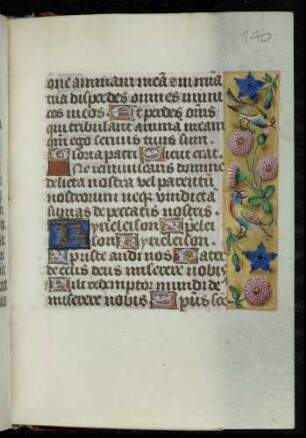 140
one animam meã & in mia
tua disperdes omnes inimi
cos meos Et perdes oms
qui tribulant animã meam
qm ego servus tuus sum.
Gloria patri Sicut erat.
Ne reminiscaris domine
delicta nostra vel parentũ
nostrorum neqz vindictã
sumas de peccatis nostris.
Kyrieleison Xpelei
son Kyrieleison.
Xpiste audi nos Pater
de celis deus miserere nobis
Fili redemptor mundi de
miserere nobis Spũs sc